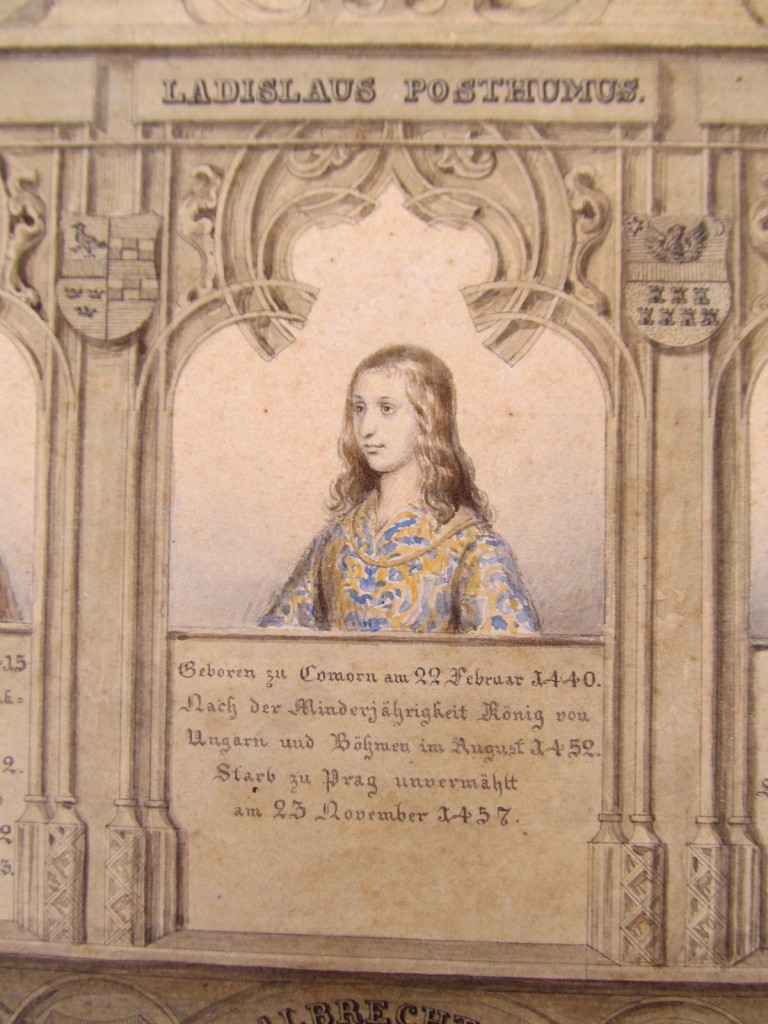 LADISLAUS POSTHUMUS.
Geboren zu Comorn am 22 Februar 1440.
Nach der Minderjährigkeit König von
Ungarn und Böhmen im August 1452.
Starb zu Prag unvermählt
am 23 November 1457.
ALBRECHT